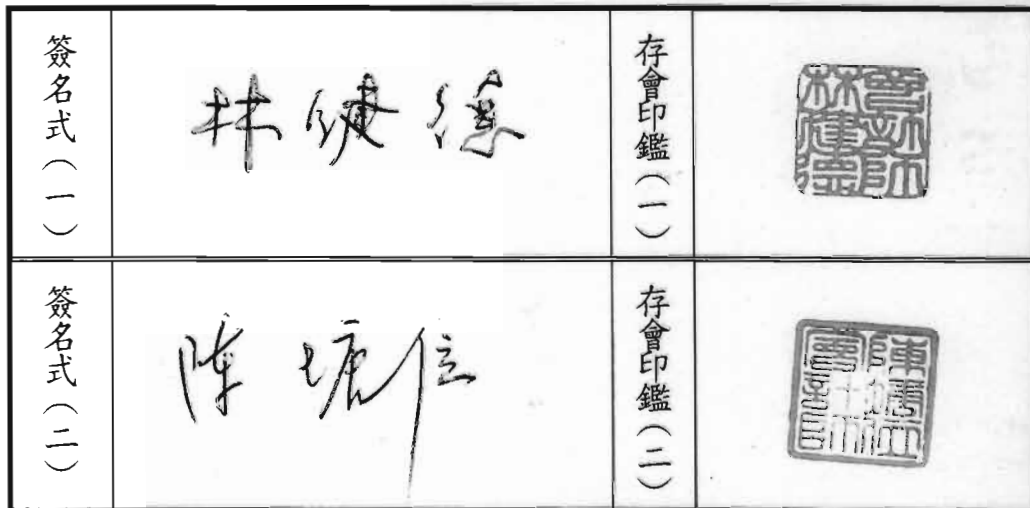 簽名式(一)
林健德
存會印鑑(一)
會計師林建德
簽名式(二)
陳塘位
存會印鑑(二)